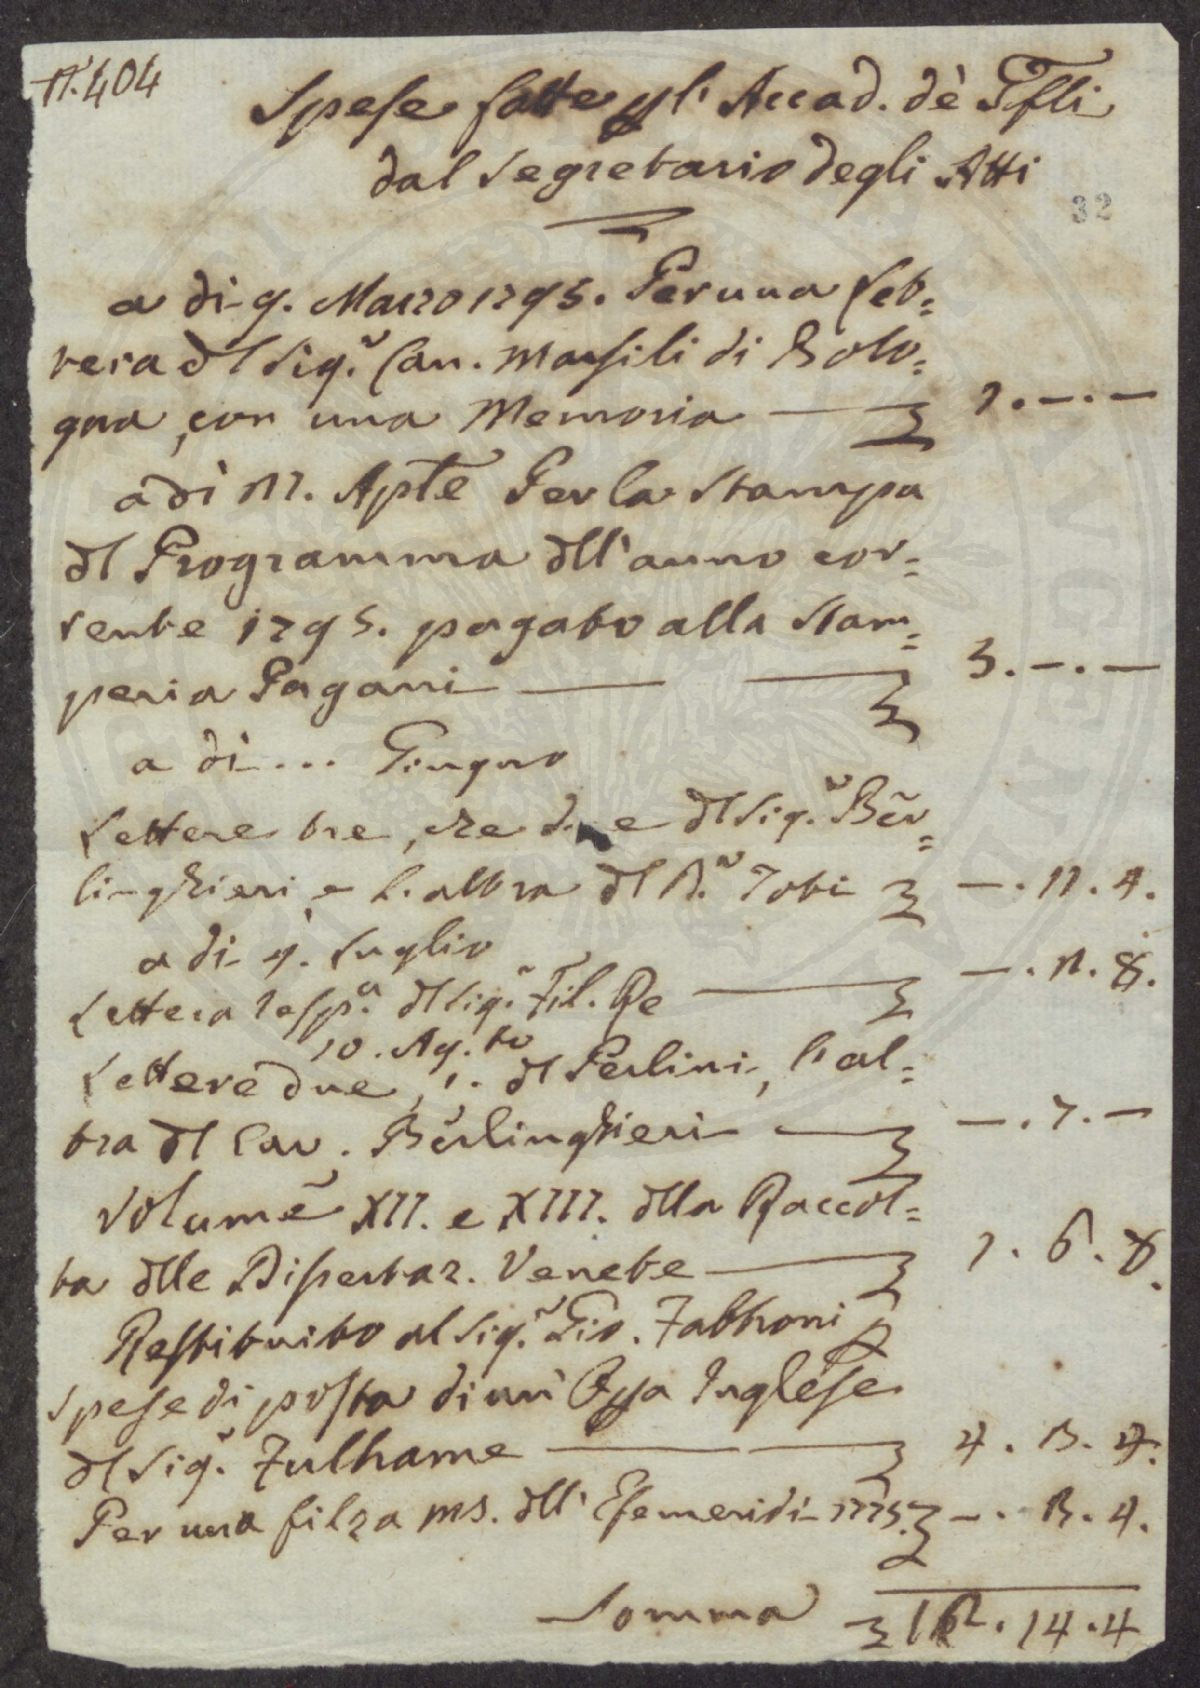 N. 404
Spese fatte p gl' Accad. dè Gfili
dal Segretario degli Atti
32
a di 9. Marzo 1795. Per una Let=
tera dl Sigr. Can. Marsili di Bolo=
gna, con una Memoria 1.—.—
adì 17. Aple Per la Stampa
dl Programma dll' anno cor=
rente 1795. pagato alla Stam=
peria Pagani 5.—.—
a di ... Giugno
Lettere tre, che due dl Sigr. Ber=
linghieri, e l'altra dl Dr. Tobi —.11.4.
a di 9. Luglio
Lettera respa. dl Sigr. Fil. Re —.11.8.
10. Ag.to
Lettere due, 1. dl Perlini, l'al=
tra dl Cav. Berlinghieri —.7.—
Volume XII. e XIII. dlla Raccol=
ta dlle Dissertaz. Venete 1.6.8.
Restituito al Sigr. Gio. Fabbroni p
spese di posta di un' Opa Inglese
dl Sigr. Fulhame 4.13.4.
Per una filza ms. dll' Efemeridi 1775. —.13.4.
Somma 14.4